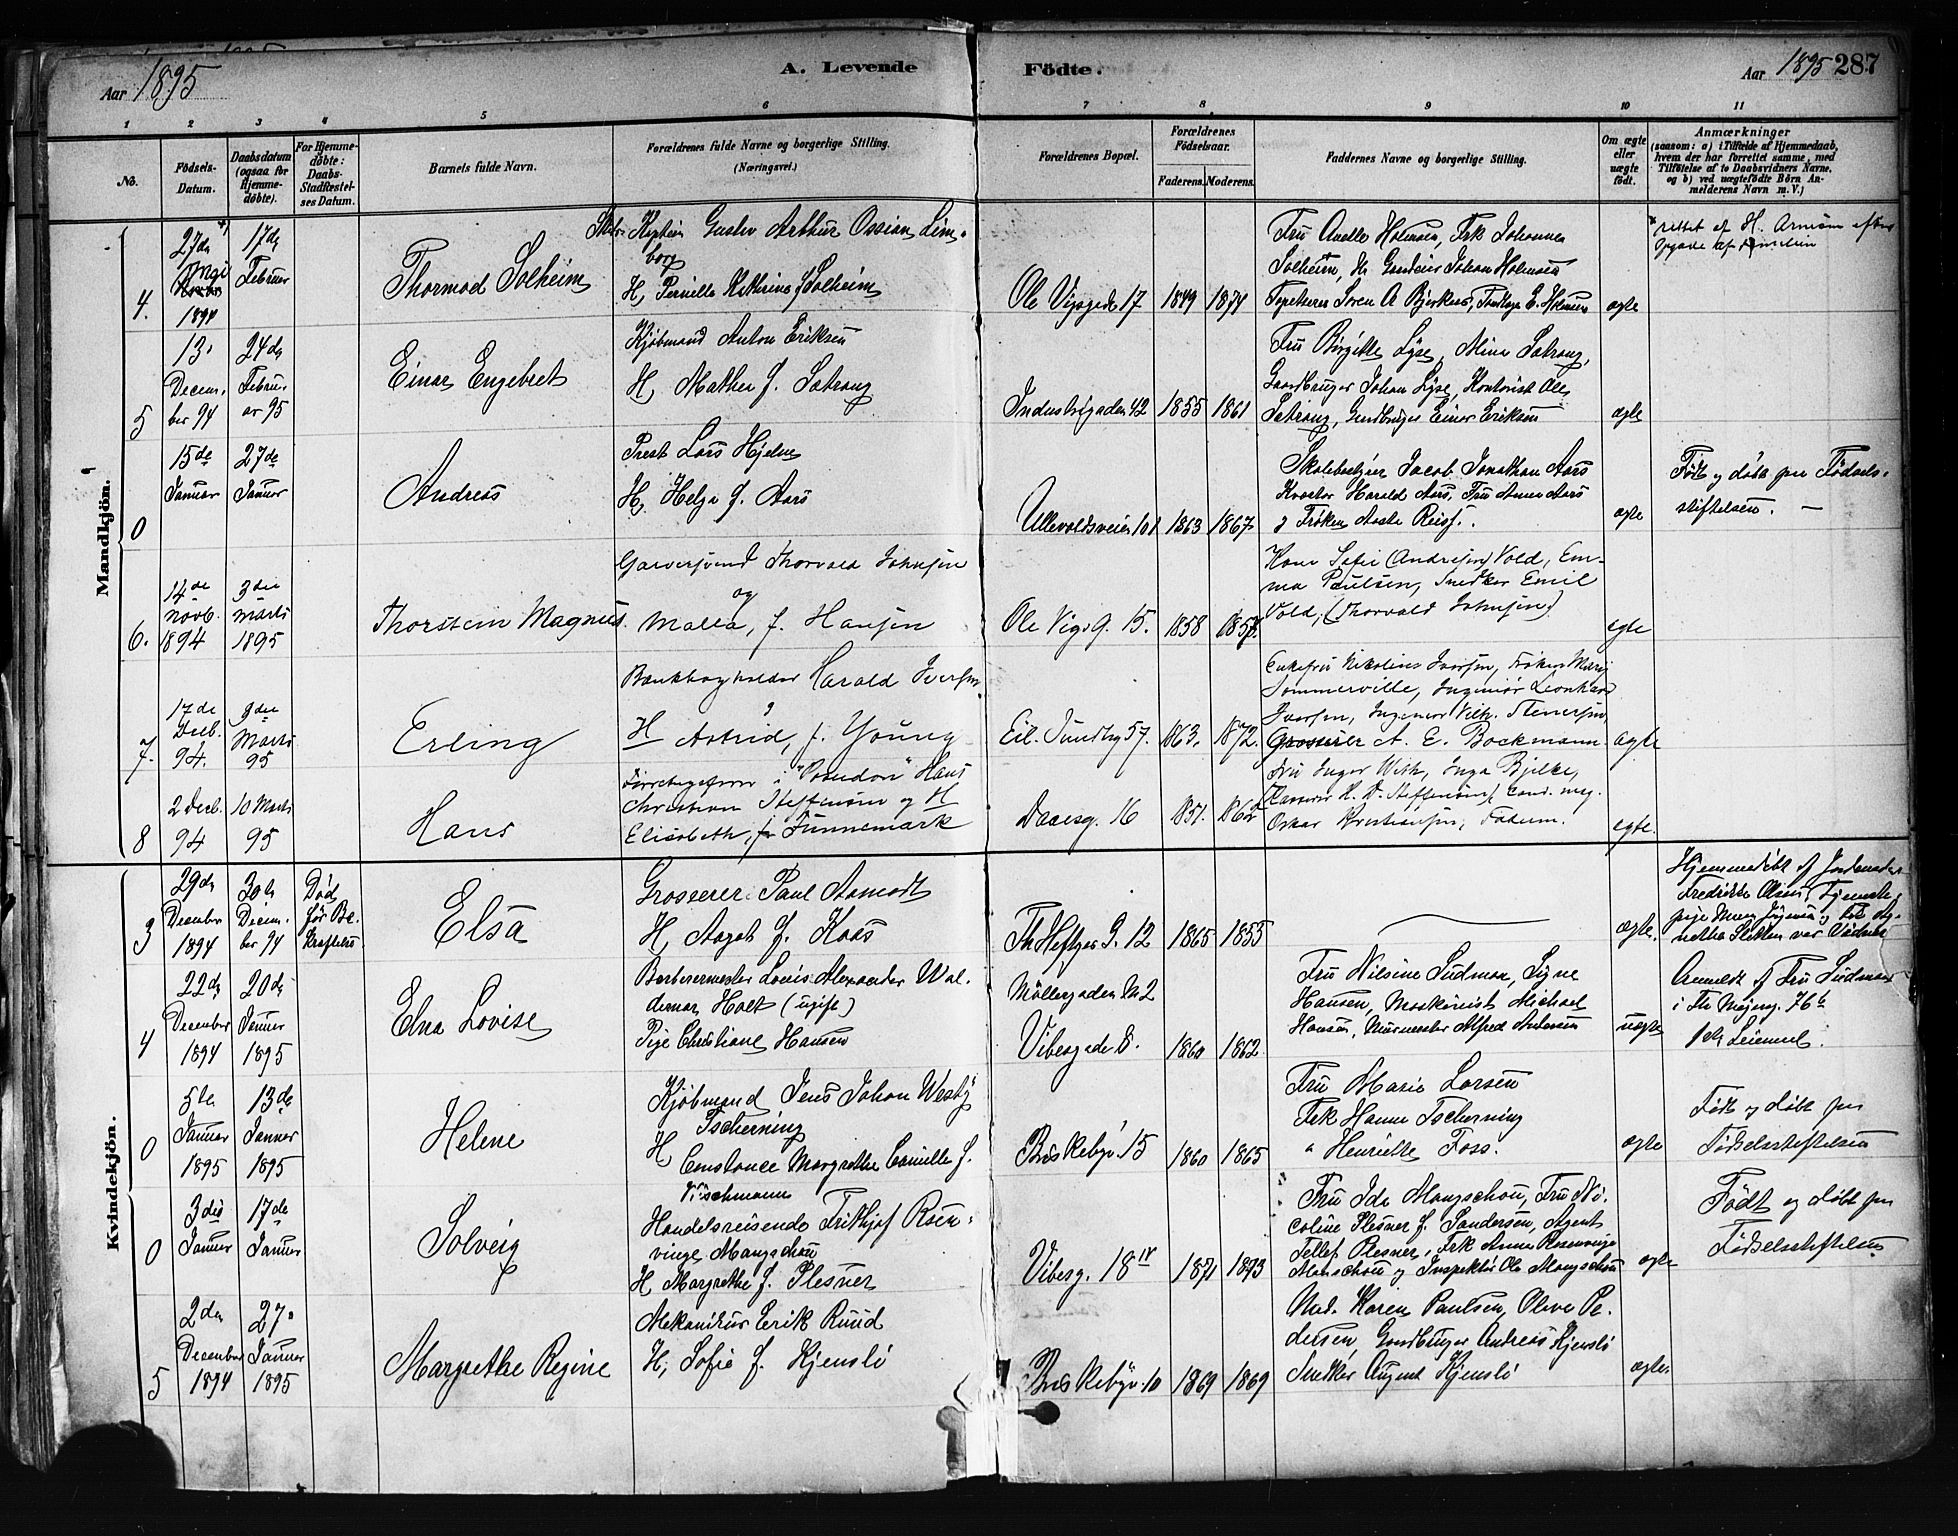 Aar 1895
A. Levende Födte.
Aar 1895 287
1 2 3 4 5 6 7 8 9 10 11
No.
Födsels-
Datum.
Daabsdatum
(ogsaa for
Hjemme-
döbte).
For Hjemme-
döbte:
Daabs-
Stadfæstel-
ses Datum.
Barnets fulde Navn.
Forældrenes fulde Navne og borgerlige Stilling.
(Næringsvei.)
Forældrenes Bopæl.
Forældrenes
Födselsaar.
Faderens. Moderens.
Faddernes Navne og borgerlige Stilling.
Om ægte
eller
uægte
födt.
Anmærkninger
(saasom: a) i Tilfælde af Hjemmedaab,
hvem der har forrettet samme, med
Tilföielse af to Daabsvidners Navne,
og b) ved uægtefödte Börn An-
melderens Navn m. V.)
Mandkjön.
4.
27de
1894
17de
Februar
Thormod Solheim
Gustav Arthur Ossian Lim-
borg
H, Pernille Kathrine f Solheim
Ole Vigsgade 17
1849 1874
Fru Holmsen, Frk Johanne
Solheim, Johan Holmsen
Tapetserer Soren A Bjerknes,
ægte
rettet af H.
5
13.
Decem-
ber 94
24de
Febru-
ar 95
Einar Engebret
Kjöbmand Anton Eriksen
H, Mathea f. Satrang
Industrigaden 42
1855 1861
Fru Birgitte Lyse, Mina Satrang,
Gaardbruger Johan Lyse, Kontorist Ole
Satrang, Gaardbruger Einar Eriksen
ægte
0
15de
Januar
27de
Januar
Andreas
Prest Lars Hjelm
H, Helga f. Aars
Ullevoldsveien 101
1863 1867
Skolebestyrer Jacob Jonathan Aars
Kvæstor Harald Aars, Fru Anna Aars
Fröken Aasta
ægte
Födt og döbt paa Födsels-
stiftelsen. —
6.
14de
novb.
1894
3die
marts
1895
Thorstein Magnus.
Garversvend Thorvald Johnsen
og
Malla, f. Hansen
Ole Vigsg. 15.
1858 1857.
Kone Sofie (Andresen) Vold, Em-
ma Paulsen, Snedker Emil
Vold, (Thorvald Johnsen).
egte
7.
17de
Decb.
94.
3die
Marts
95
Erling
Bankbogholder Harald Iversen
H Astrid, f. Young
Eil. Sundtsg 57.
1863. 1872.
Enkefru Nikoline Iversen, Fröken Mary
Sommerville, Ingeniör Leonhard
Iversen, Ingeniör Vilh. Stenersen
Grosserer A. E. Bockmann.
ægte
8
2 Decb.
94
10 Marts
95
Hans
i "Poseidon" Hans
Christian Steffensen og H
Elisabeth, f. Tinnemark
Daaesg. 16
1851. 1862
Fru Inger With, Inga Bjelke,
Kasserer H. D. Steffensen, Cand. mag.
Oskar Kristiansen, Faderen.
egte.
Kvindekjön.
3
29de
December
1894
30te
Decem-
ber 94
Död
för Be-
kræftelse
Elsa
Grosserer Paul Aamodt
H, Aagot f. Kaas
Th Heftyes G. 12
1865 1855
ægte.
Hjemmedöbt af Jordemoder
Fredrikke Olsen, Tjeneste-
pige
netha Sletten var Vidner
4
22de
December
1894
20de
Januar
1895
Elna Lovise
Barbermester Louis Alexander Wal-
demar Holt (ugift)
Pige Christiane Hansen
Möllergaden 2
Vibesgade 8.
1860 1862
Fru Nilsine Sudman, Signe
Hansen, Maskinist Michael
Hansen, Murmester Alfred Antonsen
uægte
Anmeldt af Fru Sudman
i Th Meyersg. 76b
0
5te
Januar
1895
13de
Januar
1895
Helene
Kjöbmand Jens Johan Westby
Tscherning
H
Constance Margrethe Camille f.
Vischmann
Briskebyv 15
1860 1865
Fru Marie Larsen
Frk Hanne Tscherning
" Henriette Foss.
ægte
Födt og döbt paa
Födselsstiftelsen
0
3die
Januar
17de
Januar
Solveig
Handelsreisende Frithjof Rosen-
vinge Mangschou
H Margrethe f. Plesner
Vibesg. 18 IV
1871 1873
Fru Ida Mangschou, Fru Ni-
coline Plesner f. Sandersen, Agent
Tellef Plesner, Frk Anna Rosenvinge
Mangschou og Inspektör Ole Mangschou
ægte
Födt og döbt paa
Födselsstiftelsen
5
2den
December
1894
27.
Januar
1895
Margrethe Regine
Mekanikus Erik Ruud
H, Sofie f. Kjenslö
Briskebyv. 10
1869 1869
Mad. Karen Paulsen, Olive Pe-
dersen, Gaardbruger Andreas Kjenslö
Snedker August Kjenslö
ægte.